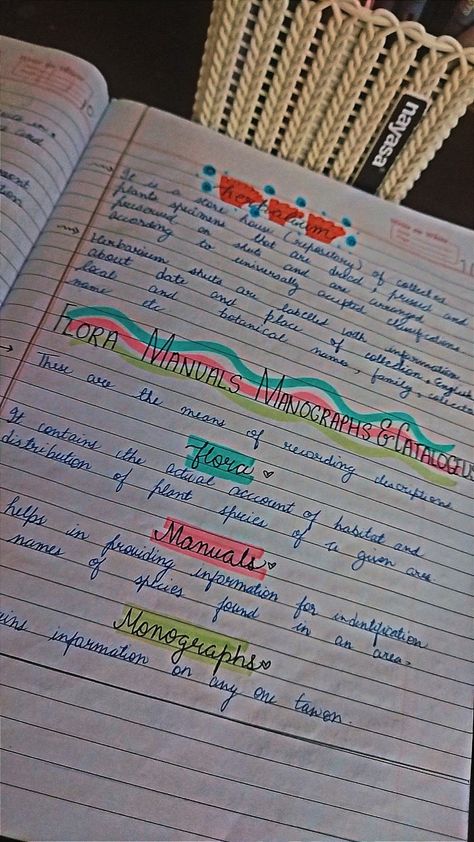 nayasa
herbarium
It is a store house (repository) of collected
plants specimens that are dried, pressed and
preserved on sheets and are arranged
according to universally accepted classification.
Herbarium sheets are labelled with information
about date and place of collection, English,
local and botanical names, family, collector
name etc
FLORA MANUALS, MANOGRAPHS & CATALOGEUS
These are the means of recording descriptions
flora
It contains the actual account of habitat and
distribution of plant species of a given area.
Manuals
helps in providing information for indentification
names of species found in an area.
Monographs
information on any one taxon.